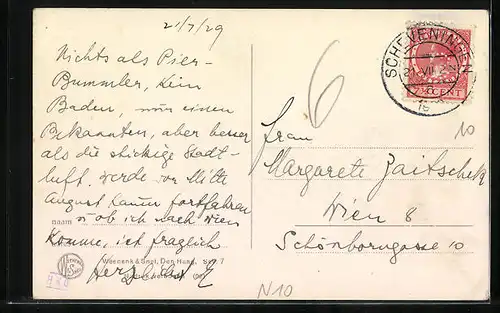 21/7/29
Nichts als Pier-
Bummler, kein
Baden, nur einen
Bekannten, aber besser
als die stickige Stadt-
luft. werde vor Mitte
August kaum fortfahren
naam u ob ich nach Wien
komme, ist fraglich
Herzlichst
Weenenk & Snel, Den Haag. Sch. 7
SCHEVENINGEN
21.VII
CENT
6
Frau
10
Margarete Zaitschek
Wien 8
Schönborngasse 10
N10